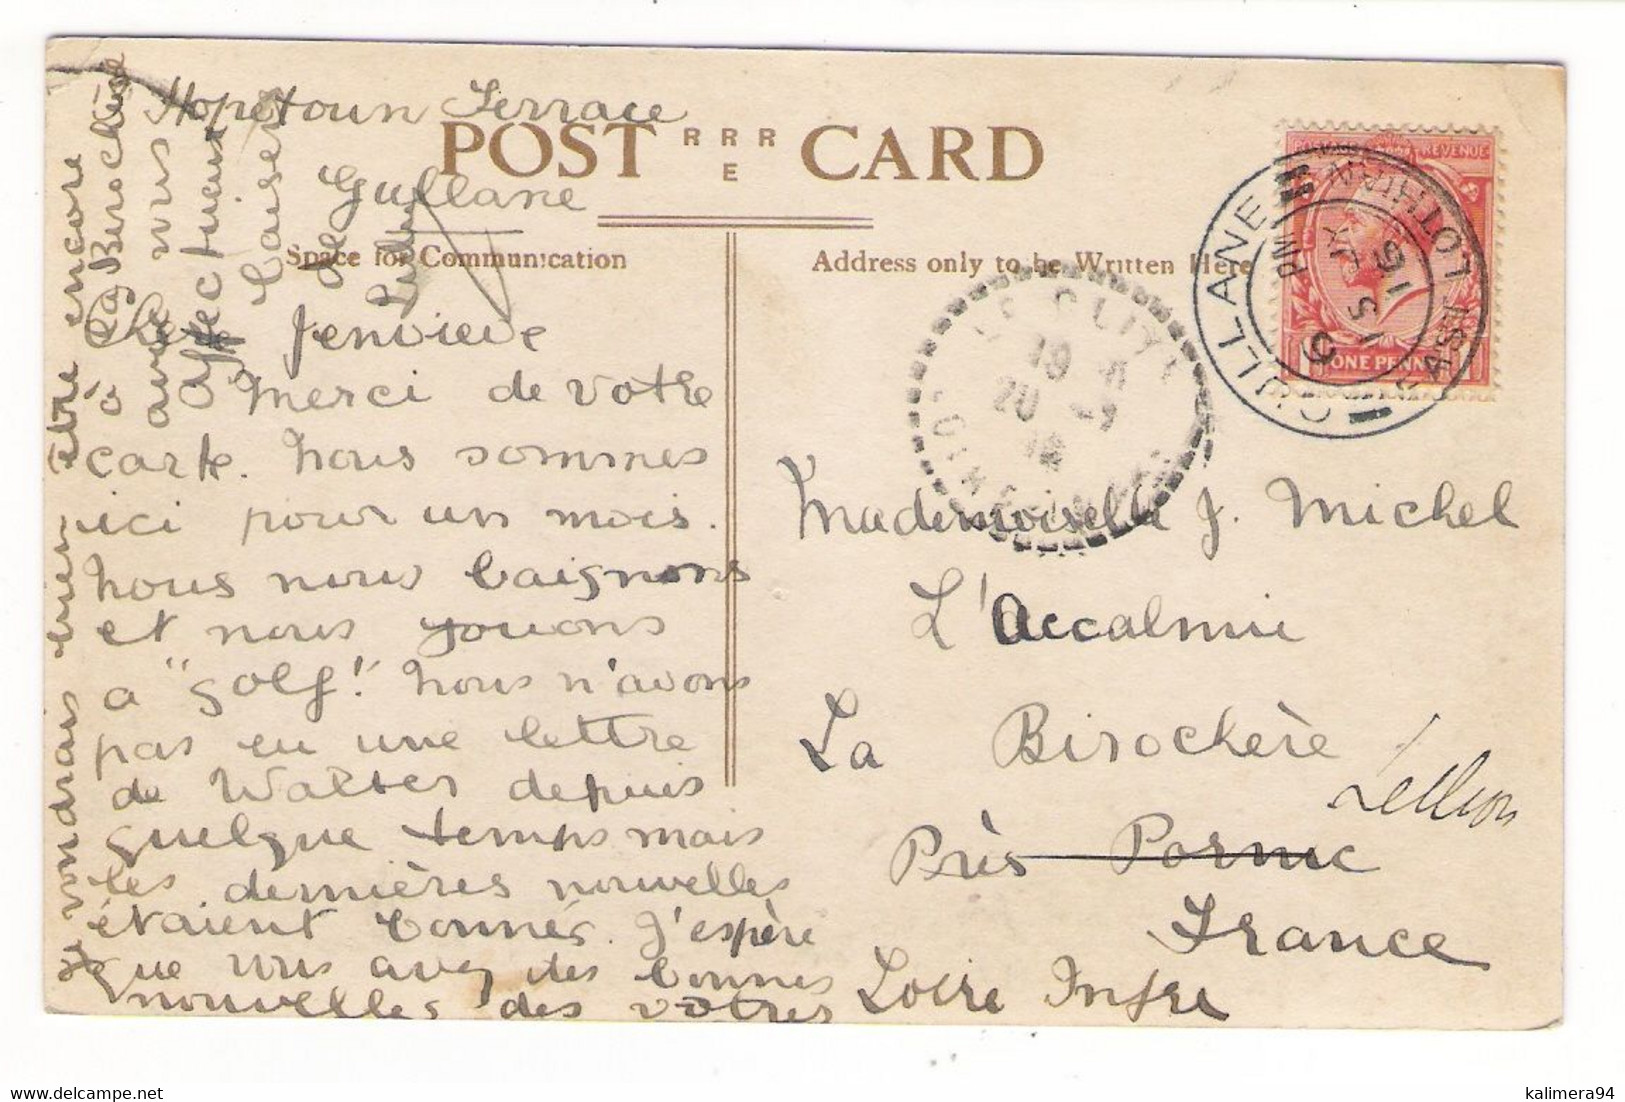 Hopetoun Terrace
POST CARD
R R R
E
Gullane
Space for Communication
Address only to be Written Here
Jenvieve
Merci de votre
carte. Nous sommes
ici pour un mois.
Nous nous baignons
et nous jouons
a "golf!" Nous n'avons
pas eu une lettre
de Walter depuis
quelque temps mais
les dernières nouvelles
étaient bonnes. J'espère
que vous avez des bonnes
nouvelles des votres
Je vondrais bien être encore
à La Birochère
avec vous
Affectueux
baisers
de
Lydia
REVENUE
ONE PENNY
GULLANE
EAST LOTHIAN
PM
15
16
Mademoiselle J. Michel
L'Accalmie
La Birochère
Près Pornic
France
Loire Infre
kalimera94
delcampe.net